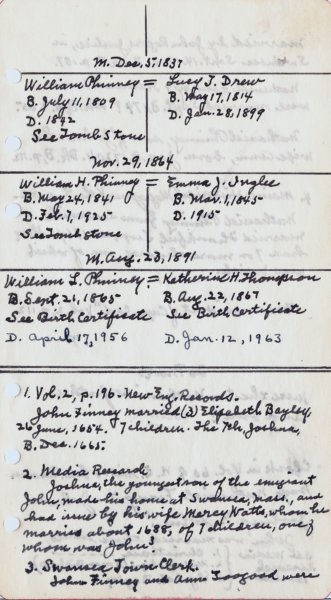 M. Dec. 5. 1837
William Phinney = Lucy T. Drew
B. July 11, 1809 B. May 17, 1814
D. 1892 D. Jan. 28, 1899
See Tomb Stone
Nov. 29, 1864
William H. Phinney = Emma J. Inglee
B. May 24, 1841 B. Mar. 1, 1845
D. Feb. 7, 1925 D. 1915
See Tomb stone
M. Aug. 23, 1891
William L. Phinney = Katherine H Thompson
B. Sept. 21, 1865 B. Aug. 22, 1867
See Birth Certificate See Birth Certificate
D. April, 17, 1956 D. Jan. 12, 1963
1. Vol. 2, p. 196 - New Eng. Records.
John Finney married (3) Elizabeth Bayley,
26 June, 1654. 7 children. The 7th, Joshua,
B. Dec. 1665.
2. Media Research
Joshua, the youngest son of the emigrant
John, made his home at Swansea, Mass., and
had issue by his wife Mercy Watts, whom he
married about 1688, of 7 children, one of
whom was John3
3. Swansea Town Clerk.
John Finney and Ann Toogood were